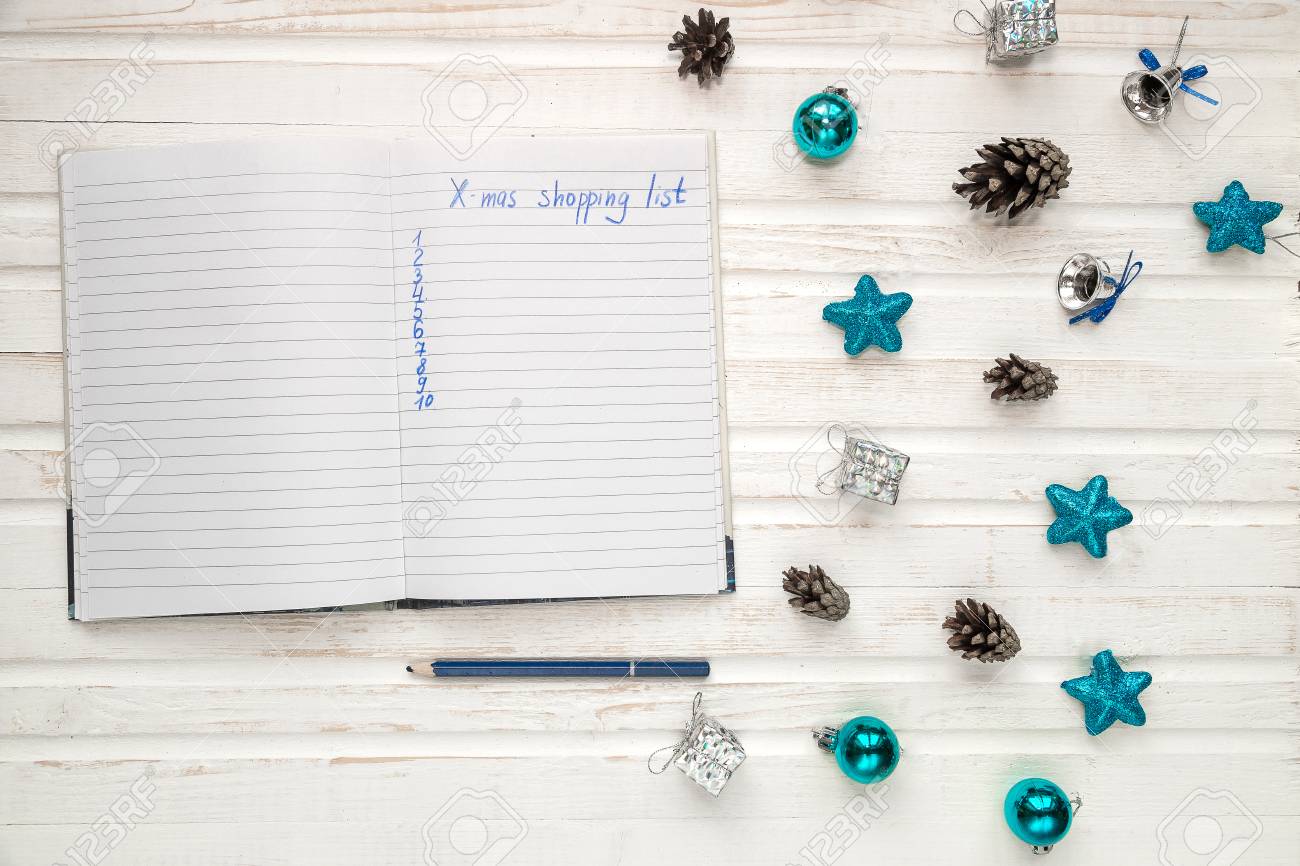 X-mas shopping list
1
2
3
4
5
6
7
8
9
10
123RF
123RF
123RF
123RF
123RF
123RF